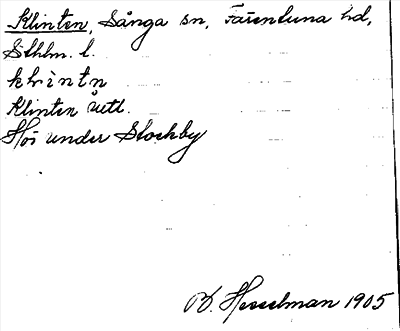 Klinten, Sånga sn, Färentuna hd,
Sthlm. l.
klìntn
Klinten utl.
Hör under Stockby
B. Hesselman 1905